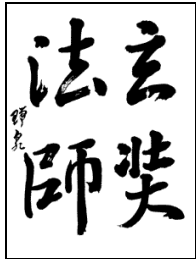 玄奘
法師